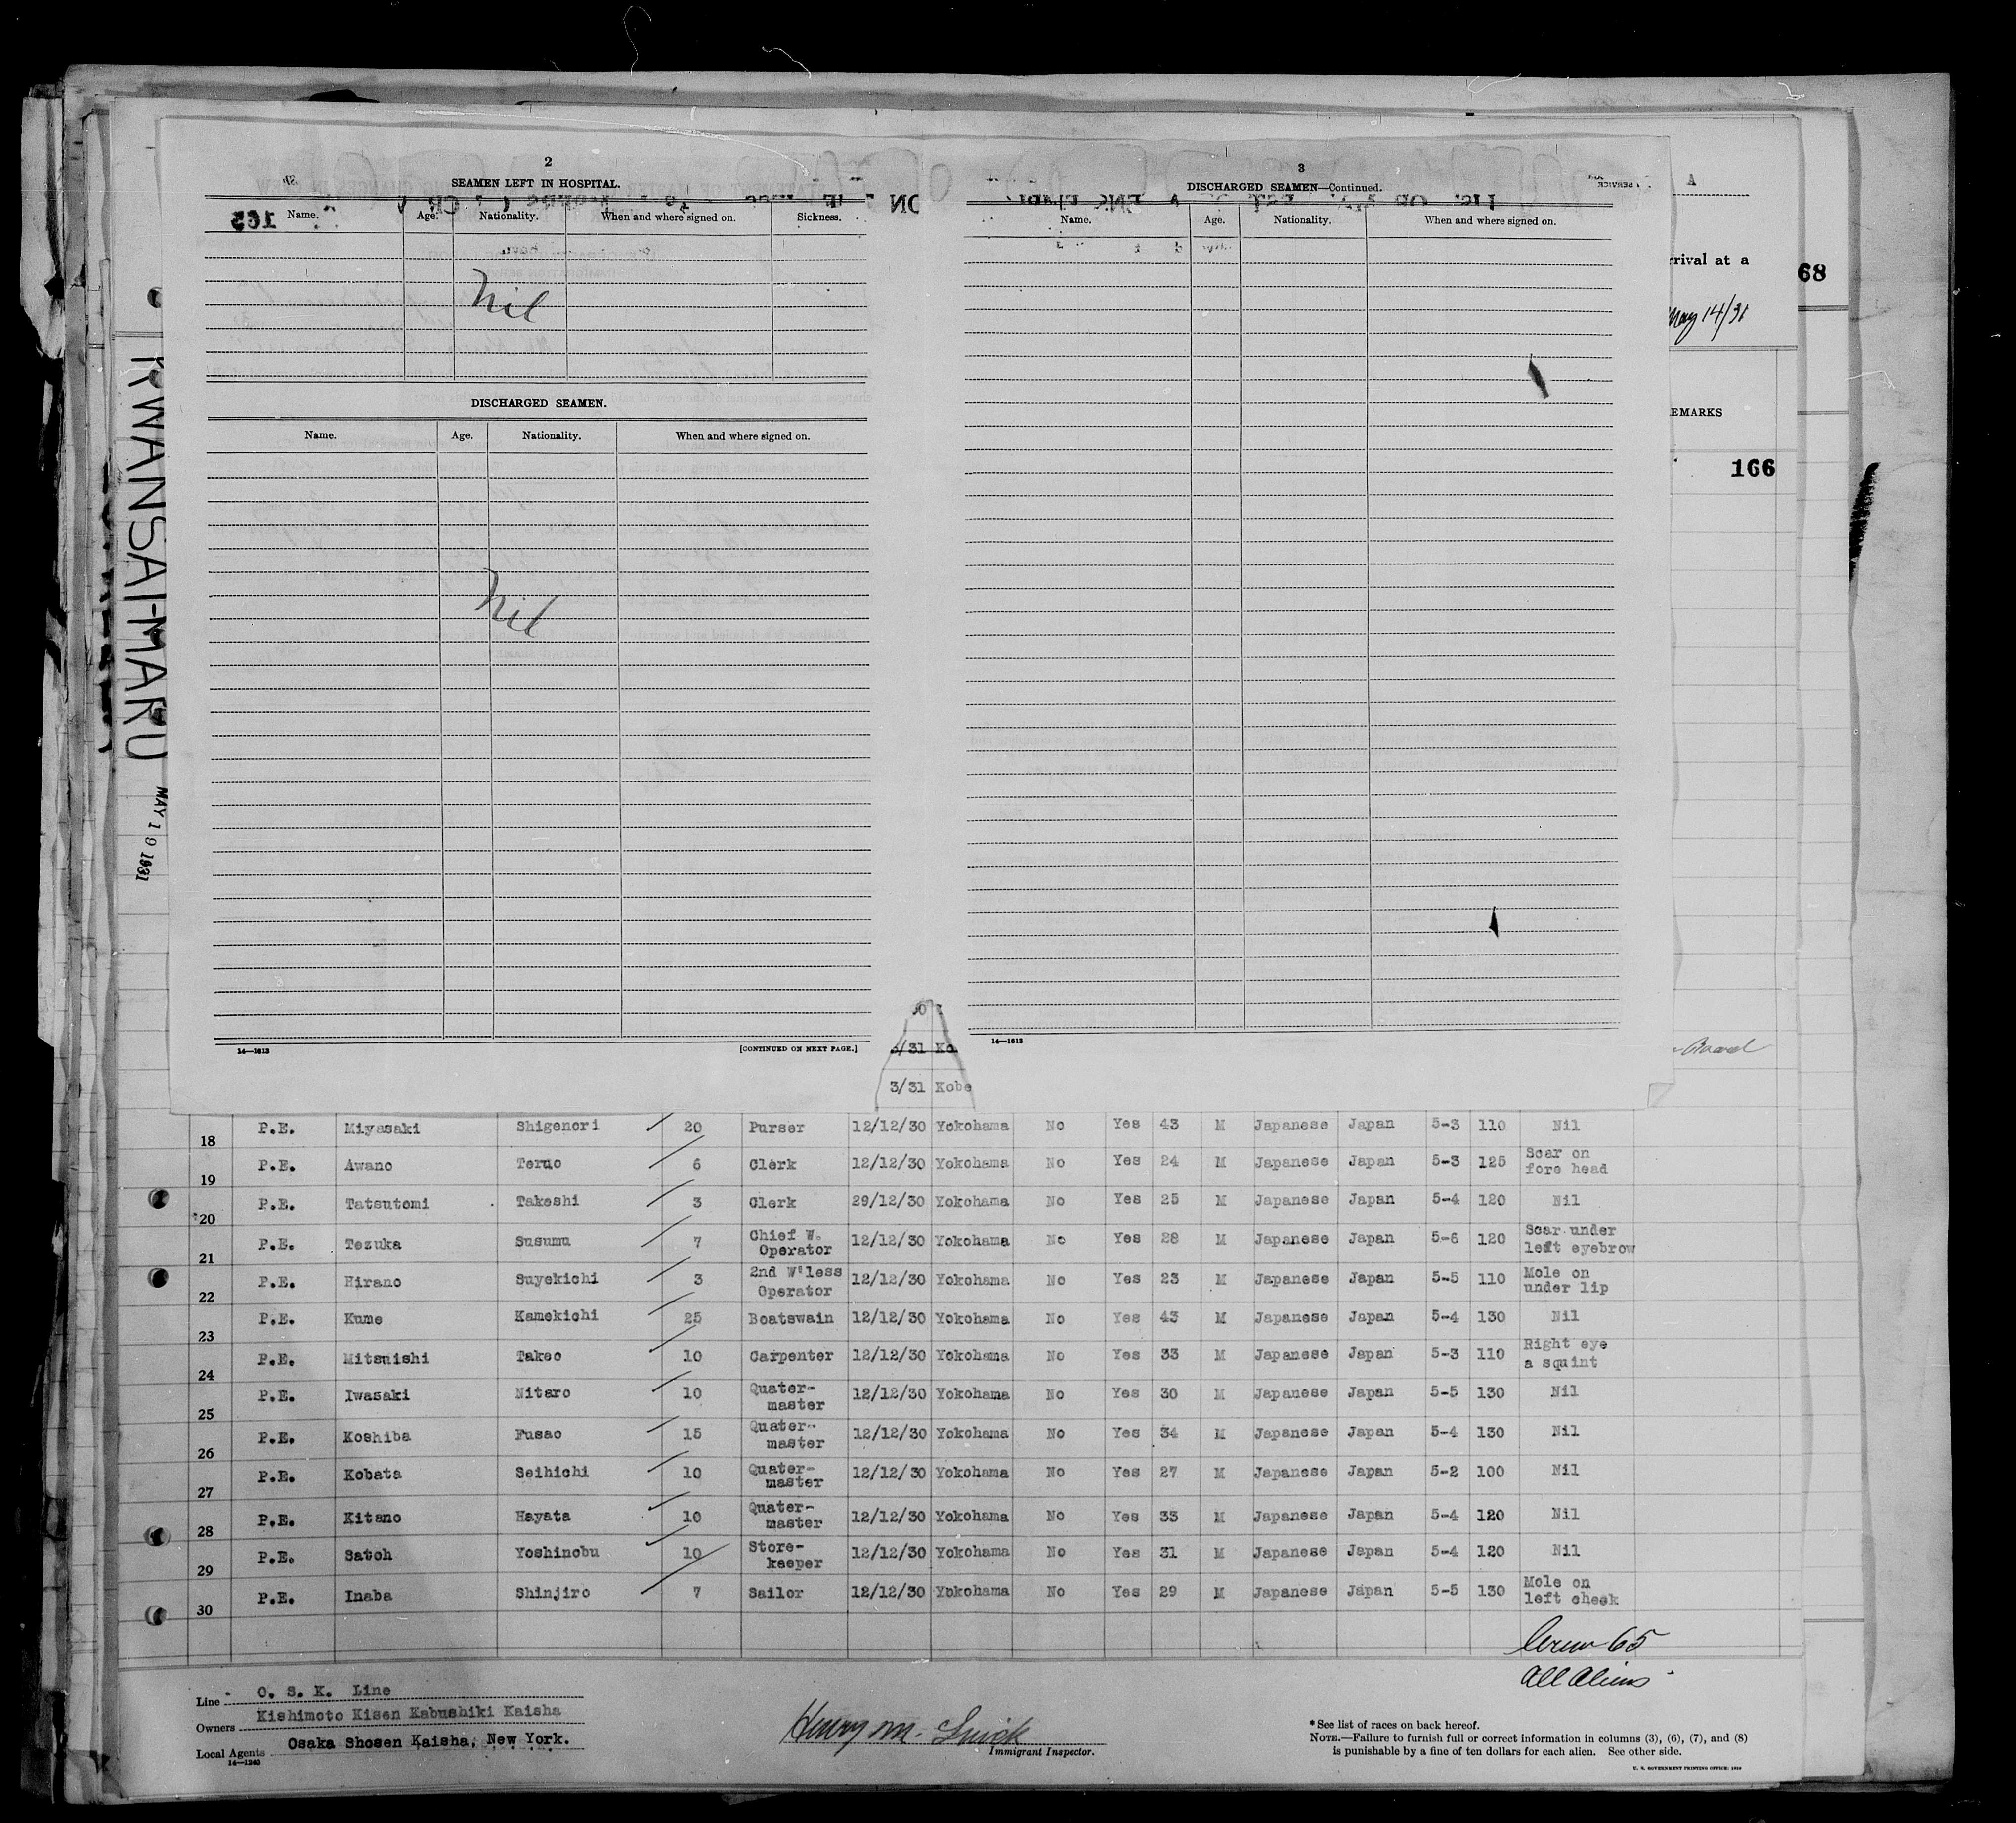 2
SEAMEN LEFT IN HOSPITAL.
Name. Age. Nationality. When and where signed on. Sickness.
Nil
DISCHARGED SEAMEN.
Name. Age. Nationality. When and where signed on.
Nil
14—1613 [CONTINUED ON NEXT PAGE.]
3
DISCHARGED SEAMEN—Continued.
Name. Age. Nationality. When and where signed on.
14—1613
A
rrival at a
68
May 14/31
EMARKS
166
KWANSAI-MARU
MAY 19 1931
3/31 Ko
3/31 Kobe
18 P.E. Miyasaki Shigenori 20 Purser 12/12/30 Yokohama No Yes 43 M Japanese Japan 5-3 110 Nil
19 P.E. Awano Teruo 6 Clerk 12/12/30 Yokohama No Yes 24 M Japanese Japan 5-3 125 Scar on
fore head
20 P.E. Tatsutomi Takeshi 3 Clerk 29/12/30 Yokohama No Yes 25 M Japanese Japan 5-4 120 Nil
21 P.E. Tezuka Susumu 7 Chief W.
Operator 12/12/30 Yokohama No Yes 28 M Japanese Japan 5-6 120 Scar under
left eyebrow
22 P.E. Hirano Suyekichi 3 2nd W'less
Operator 12/12/30 Yokohama No Yes 23 M Japanese Japan 5-5 110 Mole on
under lip
23 P.E. Kume Kamekichi 25 Boatswain 12/12/30 Yokohama No Yes 43 M Japanese Japan 5-4 130 Nil
24 P.E. Mitsuishi Takeo 10 Carpenter 12/12/30 Yokohama No Yes 33 M Japanese Japan 5-3 110 Right eye
a squint
25 P.E. Iwasaki Nitaro 10 Quater-
master 12/12/30 Yokohama No Yes 30 M Japanese Japan 5-5 130 Nil
26 P.E. Koshiba Fusao 15 Quater-
master 12/12/30 Yokohama No Yes 34 M Japanese Japan 5-4 130 Nil
27 P.E. Kobata Seihichi 10 Quater-
master 12/12/30 Yokohama No Yes 27 M Japanese Japan 5-2 100 Nil
28 P.E. Kitano Hayata 10 Quater-
master 12/12/30 Yokohama No Yes 33 M Japanese Japan 5-4 120 Nil
29 P.E. Satoh Yoshinobu 10 Store-
keeper 12/12/30 Yokohama No Yes 31 M Japanese Japan 5-4 120 Nil
30 P.E. Inaba Shinjiro 7 Sailor 12/12/30 Yokohama No Yes 29 M Japanese Japan 5-5 130 Mole on
left cheek
Crew 65
All Aliens
Line O. S. K. Line
Owners Kishimoto Kisen Kabushiki Kaisha
Local Agents Osaka Shosen Kaisha, New York.
14—1240
Henry M.
Immigrant Inspector.
* See list of races on back hereof.
NOTE.—Failure to furnish full or correct information in columns (3), (6), (7), and (8)
is punishable by a fine of ten dollars for each alien. See other side.
U. S. GOVERNMENT PRINTING OFFICE: 1930